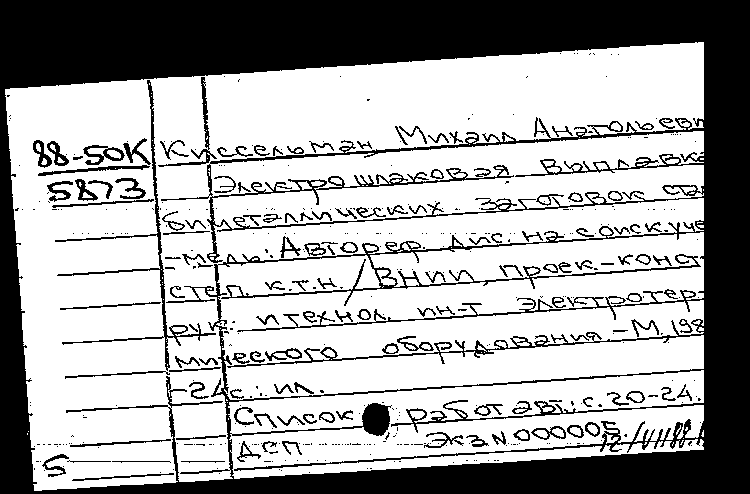 88-50К Киссельман Михаил Анатольеви
5873 Электрошлаковая выплавка
биметаллических заготовок ста
-медь: Автореф. дис. на соиск. уче
степ. к.т.н. / ВНИИ, проек.-конст
рук. и технол. ин-т электротер-
мического оборудования. -М, 198
-24с.: ил.
Список работ авт.: с. 20-24.
ДСП Экз N 000005
5